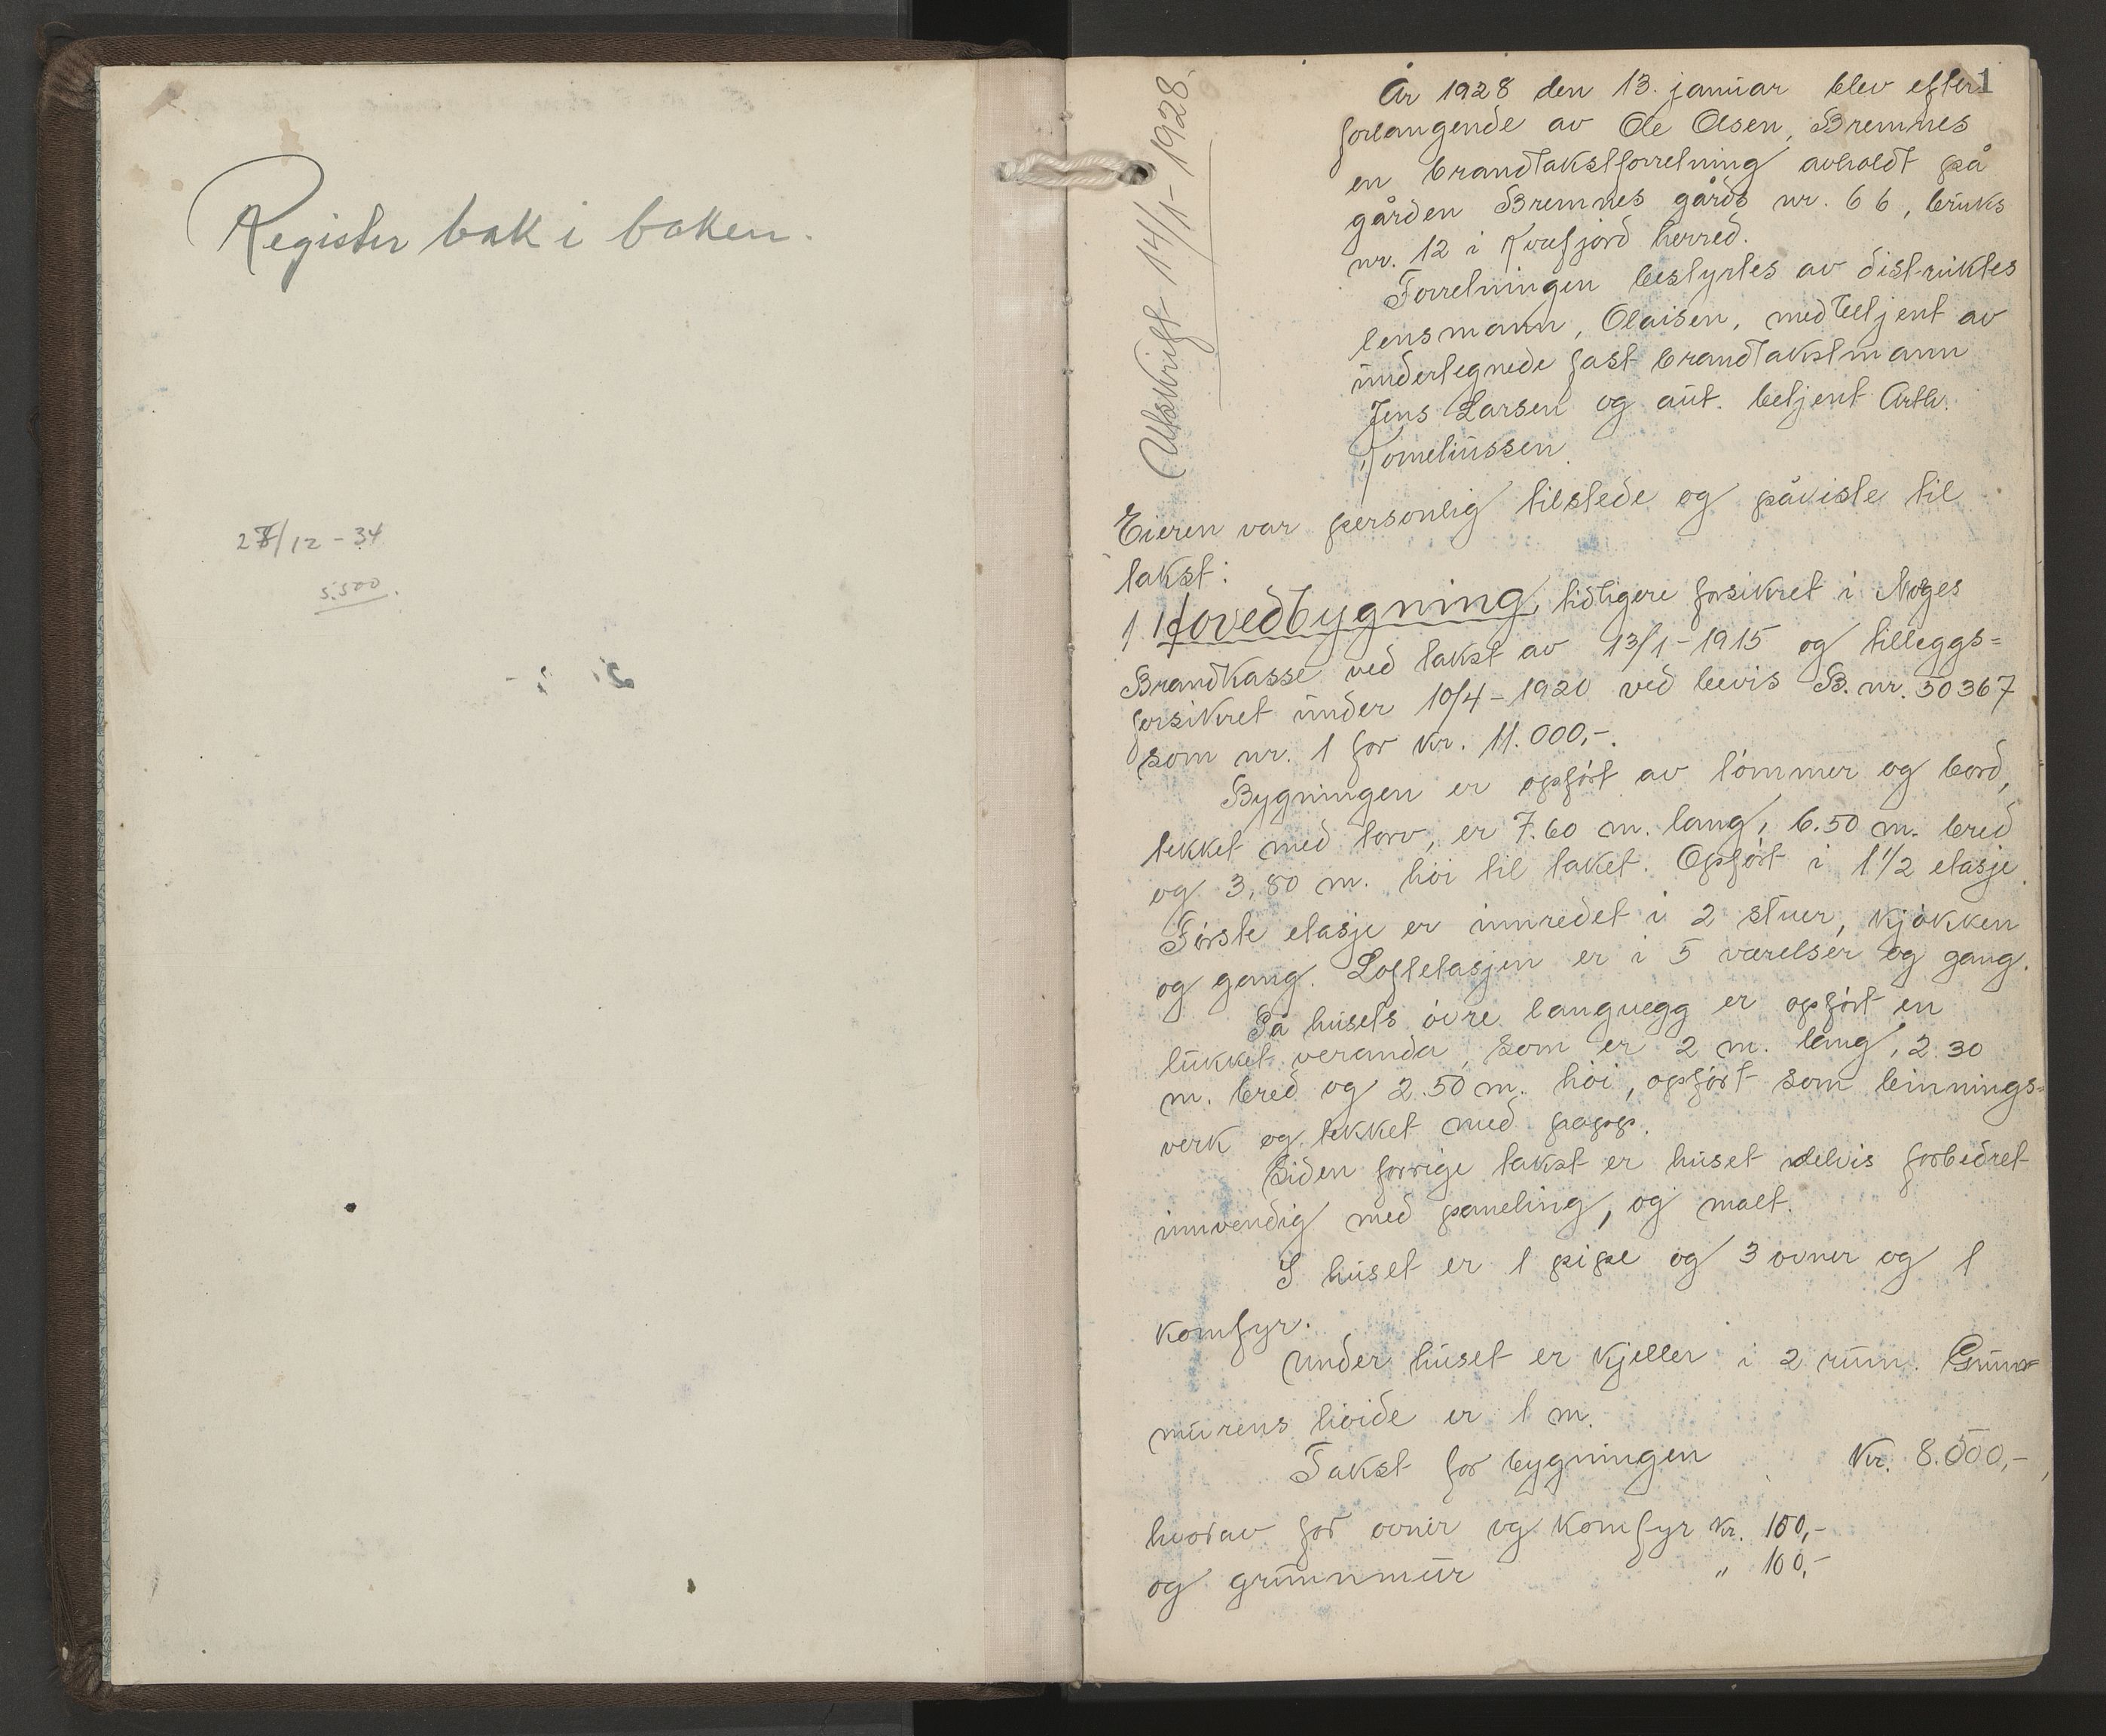 Register bak i boken.
28/12-34
5.500.
1
Utskrift 14/1-1928.
År 1928 den 13. januar blev efter
forlangende av Ole Olsen, Bremnes
en brandtakstforretning avholdt på
gården Bremnes gårds nr. 66, bruks
nr. 12 i Kvæfjord herred.
Forretningen bestyrtes av distriktes
lensmann, Olaisen, medbetjent av
undertegnede fast brandtakstmann
Jens Larsen og aut. betjent Arth.
Korneliussen.
Eieren var personlig tilstede og påviste til
takst:
1. Hovedbygning, tidligere forsikret i Norges
Brandkasse ved takst av 13/1-1915 og tilleggs=
forsikret under 10/4-1920 ved bevis B. nr. 30367
som nr. 1 for kr. 11.000,-.
Bygningen er opført av tømmer og bord,
tekket med torv, er 7.60 m. lang, 6.50 m. bred
og 3,80 m. høi til taket. Opført i 1 1/2 etasje.
Første etasje er innredet i 2 stuer, kjøkken
og gang. Loftetasjen er i 5 værelser og gang.
På husets øvre langvegg er opført en
lukket veranda, som er 2 m. lang, 2.30
m. bred og 2.50 m. høi, opført som binnings=
verk og tekket med papp.
Siden forrige takst er huset delvis forbedret
innvendig med paneling, og malt.
I huset er 1 pipe og 3 ovner og 1
komfyr.
Under huset er kjeller i 2 rum. Grunn=
murens høide er 1 m.
Takst for bygningen Kr. 8.500,-,
hvorav for ovner og komfyr kr. 100,-
og grunnmur " 100,-